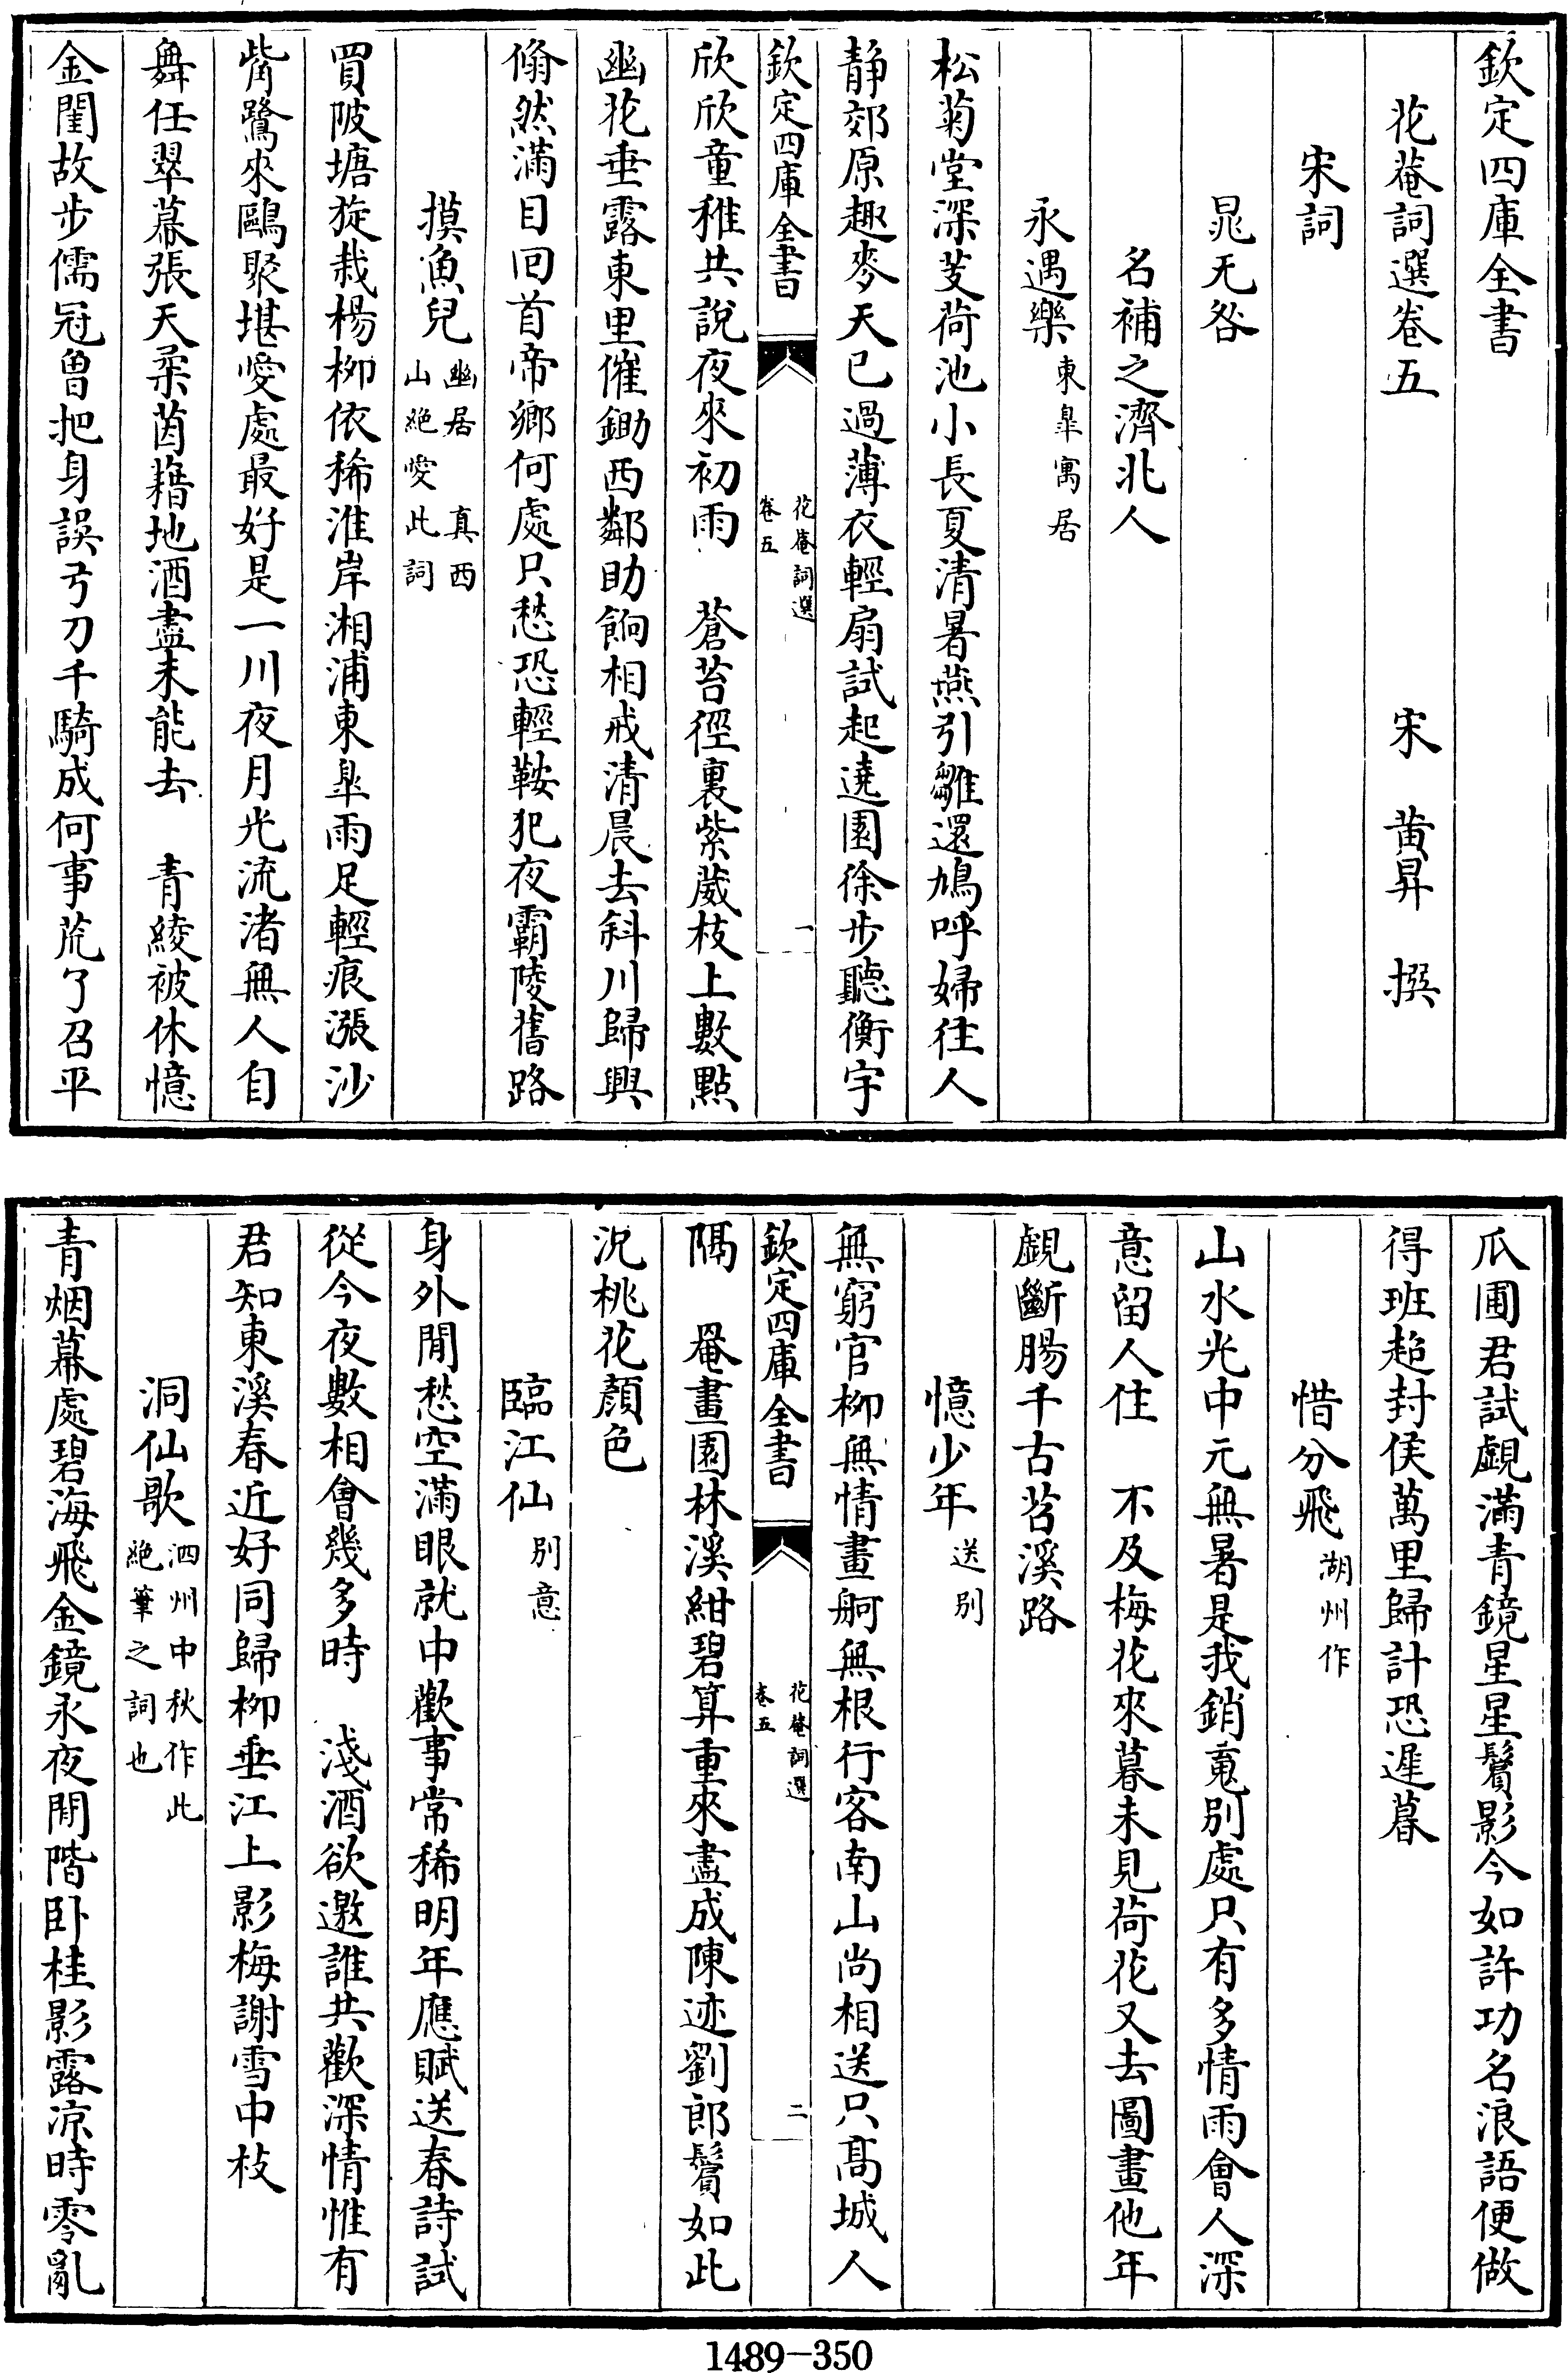 欽定四庫全書
花菴詞選卷五　宋　黄昇　撰
宋詞
晁无咎
名補之濟北人
永遇樂東臯寓居
松菊堂深芰荷池小長夏清暑燕引雛還鳩呼婦往人
静郊原趣麥天已過薄衣輕扇試起遶園徐步聽衡宇
欽定四庫全書
花菴詞選
卷五
一
欣欣童稚共說夜來初雨　蒼苔徑裏紫葳枝上數點
幽花垂露東里催鋤西鄰助餉相戒清晨去斜川歸興
翛然滿目回首帝鄉何處只愁恐輕鞍犯夜霸陵舊路
摸魚兒幽居　真西
山絶愛此詞
買陂塘旋栽楊栁依稀淮岸湘浦東臯雨足輕痕漲沙
觜鷺來鷗聚堪愛處最好是一川夜月光流渚無人自
舞任翠幕張天柔茵藉地酒盡未能去　青綾被休憶
金閨故步儒冠曽把身誤弓刀千騎成何事荒了召平
瓜圃君試覷滿青鏡星星鬢影今如許功名浪語便做
得班超封侯萬里歸計恐遲暮
惜分飛湖州作
山水光中元無暑是我銷䰟别處只有多情雨會人深
意留人住　不及梅花來暮未見荷花又去圖畫他年
覷斷腸千古苕溪路
憶少年送别
無窮官栁無情畫舸無根行客南山尚相送只髙城人
欽定四庫全書
花菴詞選
卷五
二
隔　罨畫園林溪紺碧算重來盡成陳迹劉郎鬢如此
况桃花顔色
臨江仙别意
身外閒愁空滿眼就中歡事常稀明年應賦送春詩試
從今夜數相會幾多時　淺酒欲邀誰共歡深情惟有
君知東溪春近好同歸栁垂江上影梅謝雪中枝
洞仙歌泗州中秋作此
絶筆之詞也
青烟幕處碧海飛金鏡永夜閒階卧桂影露凉時零亂
1489-350